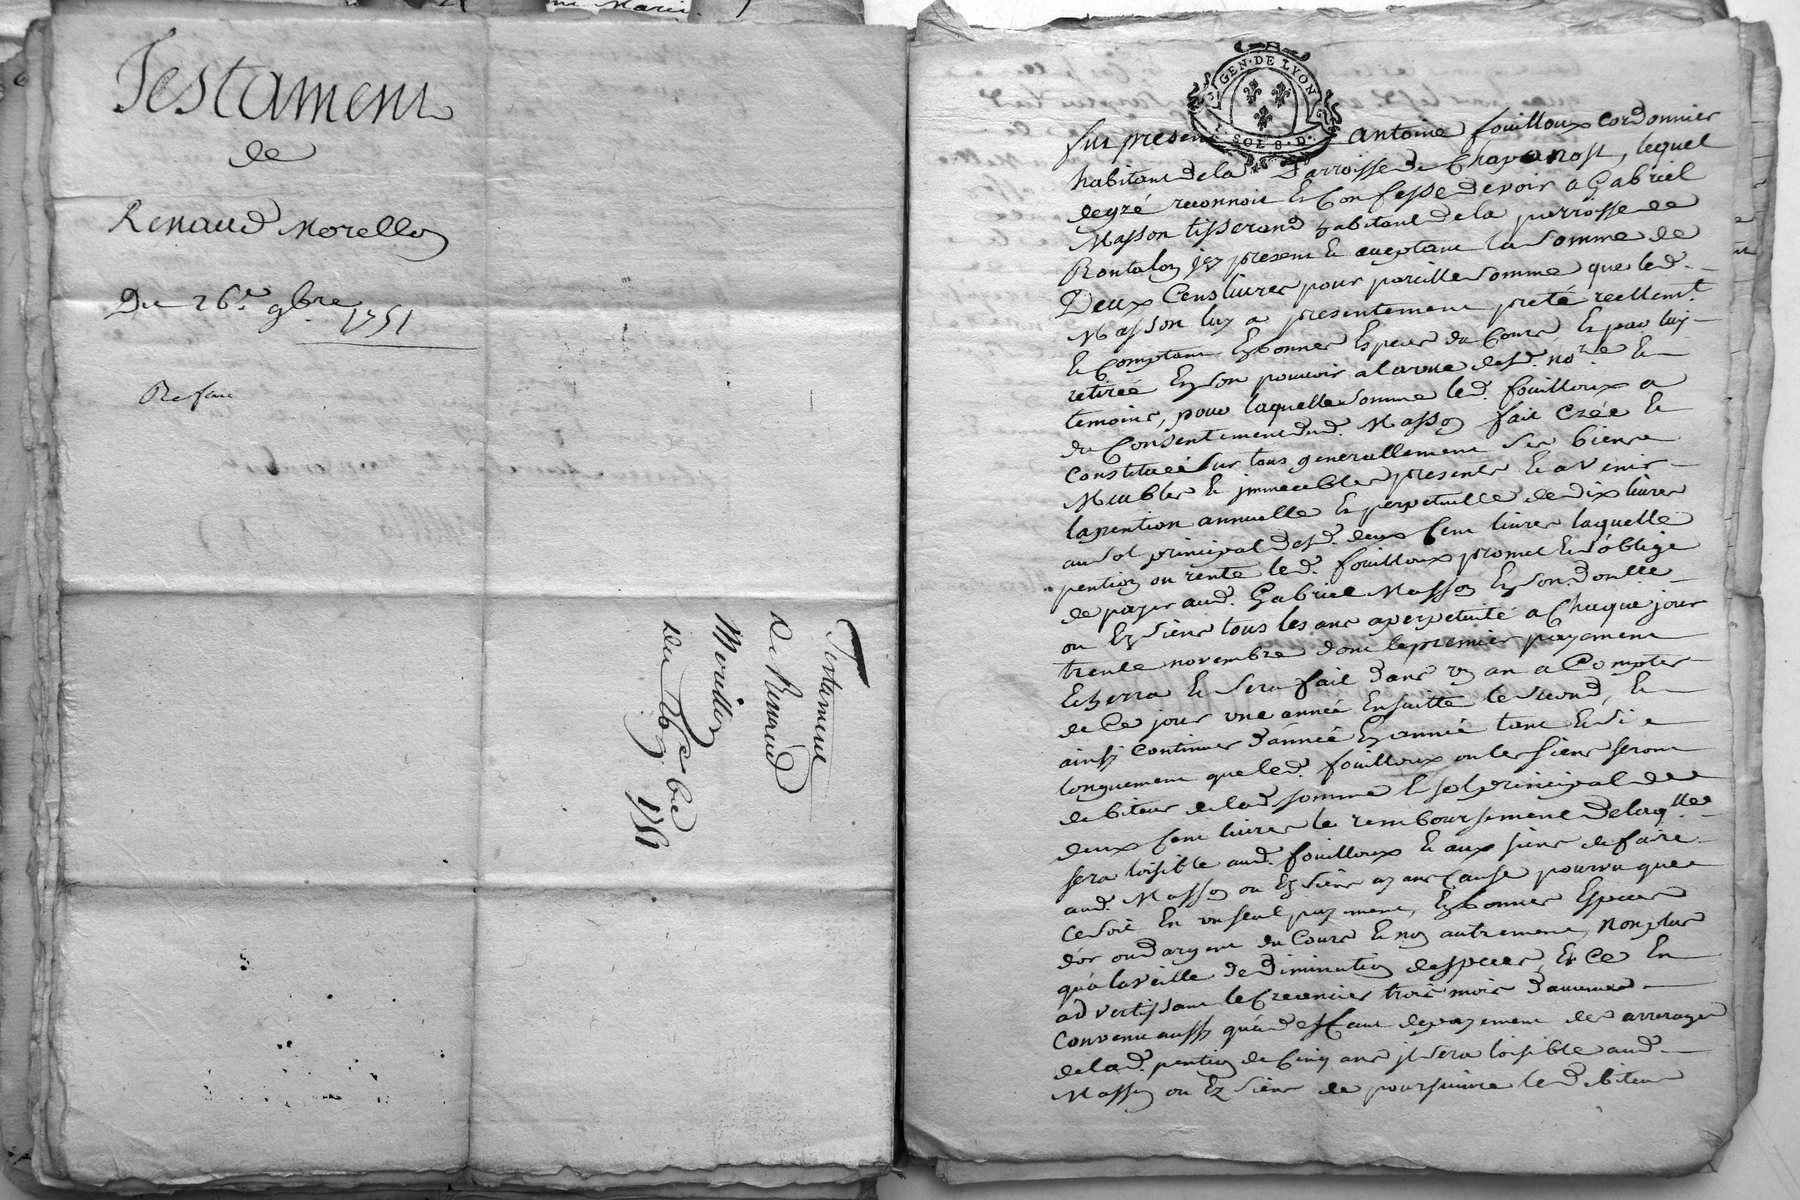 Testament
de
Renaud Morellon
Du 26.e 9bre 1751
Refait
Testament
De Renaud
Morillon
Du 26 9bre
1751
GEN. DE LYON
1. SOL 8. D.
fut present Antoine fouilloux cordonnier
habitant de la Parroisse de Chavanost, lequel
de gré reconnoit Et Confesse devoir a Gabriel
Masson tisserand habitant de la parroisse de
Rontalon jcy present Et aceptant la somme de
Deux Cens livres pour pareille somme que led.
Masson luy a presentement preté reellemt.
Et Comptant En bonnes Especes du Cours Et par luy
retirée En son pouvoir a la vue desd. nore Et
temoins, pour laquelle somme led. fouilloux a
du Consentement dud. Masson fait Créé Et
Constitué sur tous generallement ses biens
Meubles Et jmmeubles presents Et avenir
la pention annuelle Et perpetuelle de dix livres
au sol principal desd. deux Cent livres laquelle
pention ou rente led. fouilloux promet Et s'oblige
de payer aud. Gabriel Masson En son domlle
ou Ez siens tous les ans a perpetuité a Chaque jour
trente novembre dont le premier payement
Echerra Et sera fait dans un an a Compter
de Ce jour une année Ensuitte le second, Et
ainsy Continuer d'année En année tant Et si
longuement que led. fouilloux ou les siens seront
debiteur de lad. somme Et sol principal de
deux Cent livres le remboursement de laqlle
sera loisible aud. fouilloux Et aux siens de faire
aud. Masson ou Ez siens ayant Cause pourvu que
Ce soit En un seul payement, En bonnes Especes
d'or ou d'argent du Cours Et non autrement, non plus
qu'a la veille de diminution d'especes, Et Ce En
advertissant le Creancier trois mois d'avance
Convenu aussy qu'a deffaut de payement des arrerages
de lad. pention de Cinq ans jl sera loisible aud.
Masson ou Ez siens de poursuivre led. debiteur